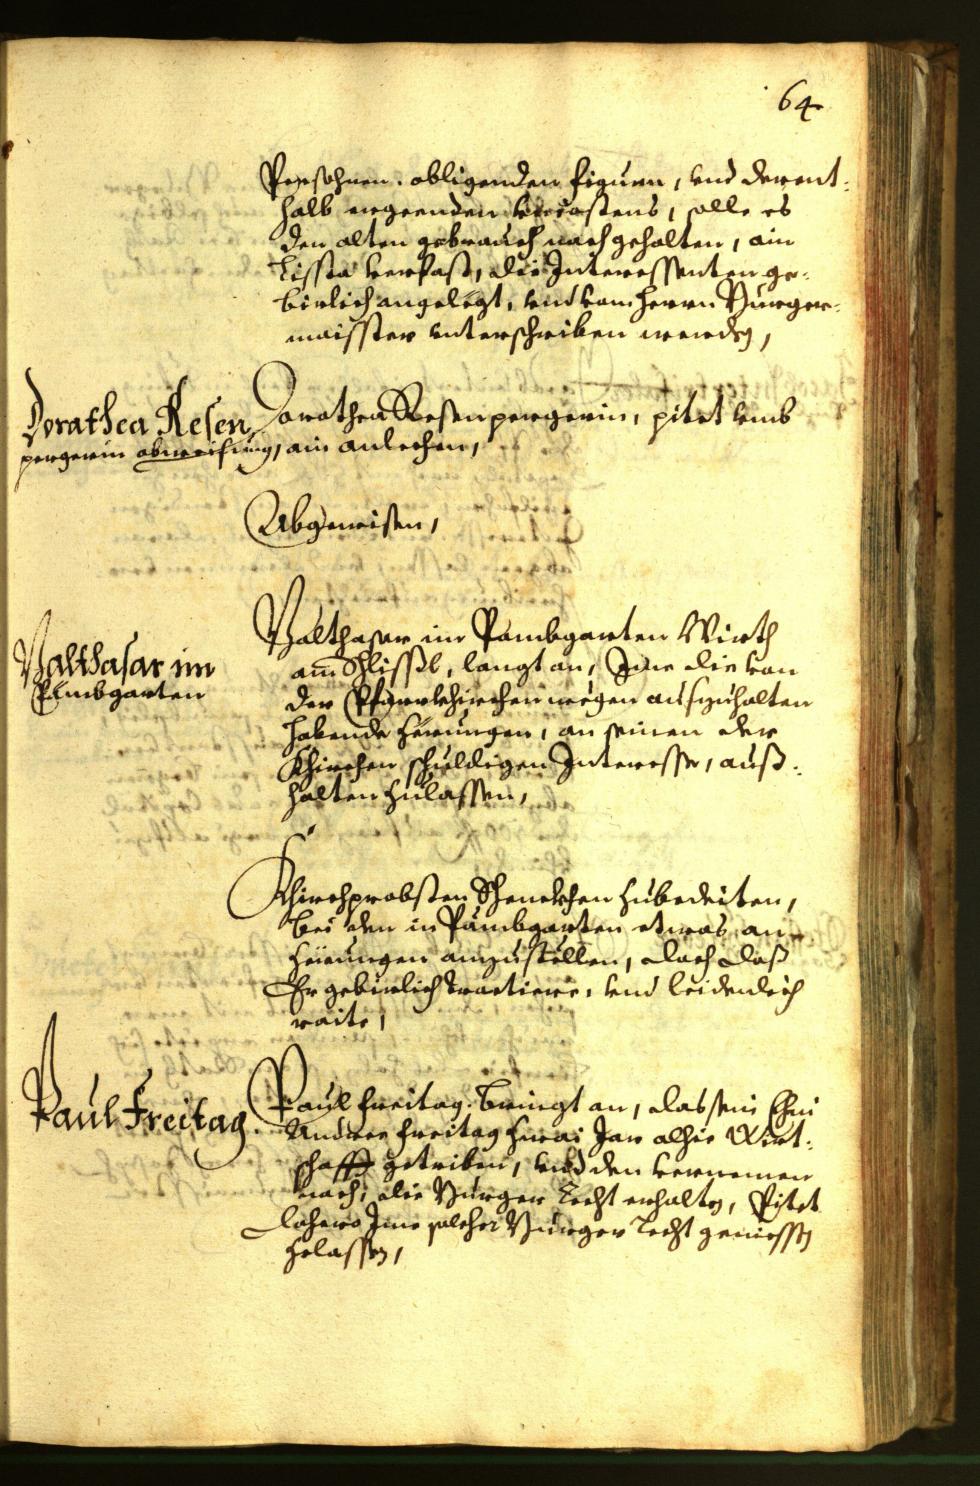 64
Persohnen obligenden figurn, vnd derent-
halb ergeenden vncostens, solle es
den alten gebrauch nach gehalten, ain
Lissta verfast, die Interessenten ge-
birlich angelegt, vnd vom Herrn Burger-
maisster vnterschriben werden,
Dorathea Resen
pergerin abweisung,
Dorathea Resenpergerin, pitet vmb
ain anlechen,
Abgewisen,
Balthasar im
Pämbgarten
Balthasar im Pambgarten Wirth
am Schlissl, langt an, Ime die von
der Pfarrkhirchen wegen aufzuhalten
habende Zerungen, an seinen der
Khirchen schuldigen Interesse, auß-
halten zulassen,
Khirchprobsten Schenckhen zubedeiten,
bei den in Pämbgarten etwas an
Zörungen anzustellen, doch daß
Er gebirlich tractiere, vnd leidenlich
raite,
Paul Freitag
Paul Freitag bringt an, das sein Ehni
Andree Freitag zwai Jar alhie Wirt-
schafft getriben, vnd den vernemen
nach, die Burger Recht erhalten, Pitet
dahero Ime solches Burger Recht geniessen
zelassen,